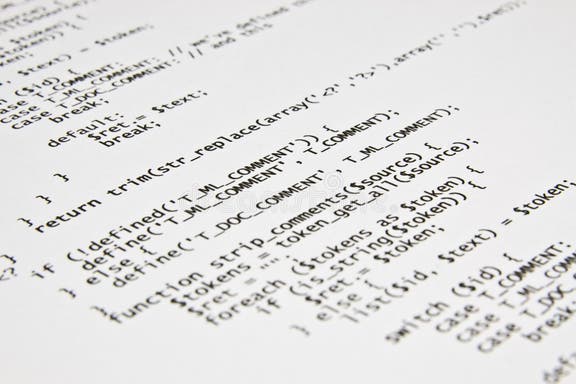 $text) = $token;
($id) {
case T_COMMENT: // we've defined
case T_ML_COMMENT: // and this
case T_DOC_COMMENT:
break;
default:
$ret .= $text;
break;
}
}
}
return trim(str_replace(array('<?','?>'),array('','')
}
if (!defined('T_ML_COMMENT')) {
define('T_ML_COMMENT', T_COMMENT);
} else {
define('T_DOC_COMMENT', T_ML_COMMENT);
}
function strip_comments($source) {
$tokens = token_get_all($source);
$ret = "";
foreach ($tokens as $token) {
if (is_string($token)) {
$ret .= $token;
} else {
list($id, $text) = $token;
switch ($id) {
case T_COMMENT:
case T_ML_COMMENT
case T_DOC
break